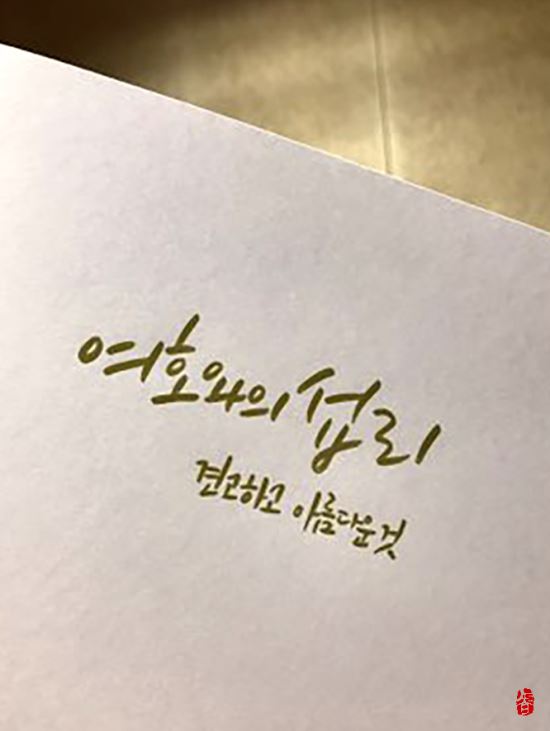 여호와의 섭리
견고하고 아름다운 것